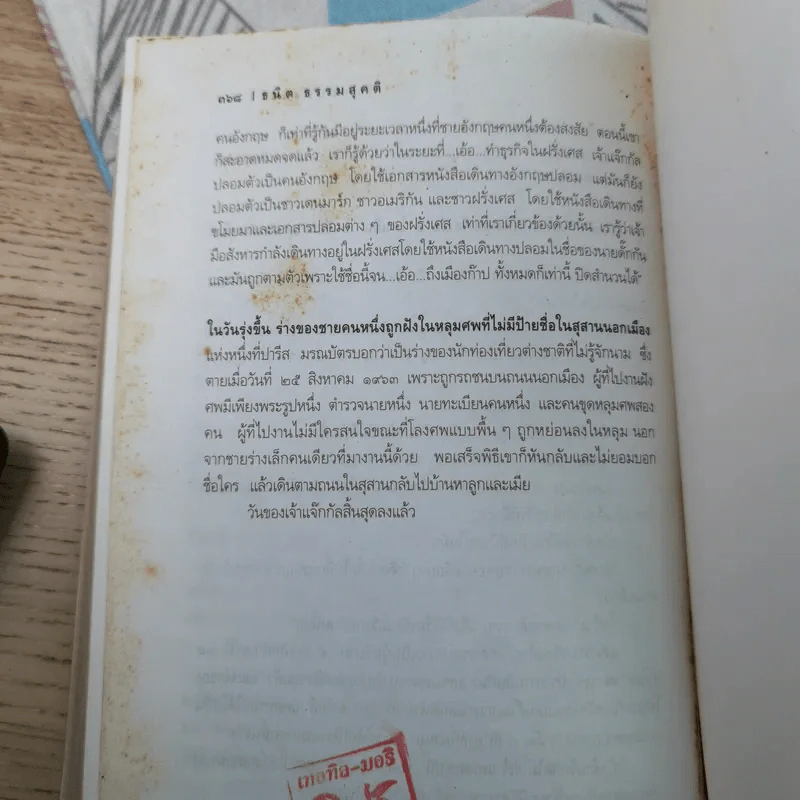 ๓๖๘ | ธนิต ธรรมสุคติ
คนอังกฤษ ก็เท่าที่รู้กันมีอยู่ระยะเวลาหนึ่งที่ชายอังกฤษคนหนึ่งต้องสงสัย ตอนนี้เขา
ก็สะอาดหมดจดแล้ว เราก็รู้ด้วยว่าในระยะที่...เอ้อ...ทำธุรกิจในฝรั่งเศส เจ้าแจ๊กกัล
ปลอมตัวเป็นคนอังกฤษ โดยใช้เอกสารหนังสือเดินทางอังกฤษปลอม แต่มันก็ยัง
ปลอมตัวเป็นชาวเดนมาร์ก ชาวอเมริกัน และชาวฝรั่งเศส โดยใช้หนังสือเดินทางที่
ขโมยมาและเอกสารปลอมต่าง ๆ ของฝรั่งเศส เท่าที่เราเกี่ยวข้องด้วยนั้น เรารู้ว่าเจ้า
มือสังหารกำลังเดินทางอยู่ในฝรั่งเศสโดยใช้หนังสือเดินทางปลอมในชื่อของนายดั๊กกัน
และมันถูกตามตัวเพราะใช้ชื่อนี้จน...เอ้อ...ถึงเมืองก๊าป ทั้งหมดก็เท่านี้ ปิดสำนวนได้"
ในวันรุ่งขึ้น ร่างของชายคนหนึ่งถูกฝังในหลุมศพที่ไม่มีป้ายชื่อในสุสานนอกเมือง
แห่งหนึ่งที่ปารีส มรณบัตรบอกว่าเป็นร่างของนักท่องเที่ยวต่างชาติที่ไม่รู้จักนาม ซึ่ง
ตายเมื่อวันที่ ๒๕ สิงหาคม ๑๙๖๓ เพราะถูกรถชนบนถนนนอกเมือง ผู้ที่ไปงานฝัง
ศพมีเพียงพระรูปหนึ่ง ตำรวจนายหนึ่ง นายทะเบียนคนหนึ่ง และคนขุดหลุมศพสอง
คน ผู้ที่ไปงานไม่มีใครสนใจขณะที่โลงศพแบบพื้น ๆ ถูกหย่อนลงในหลุม นอก
จากชายร่างเล็กคนเดียวที่มางานนี้ด้วย พอเสร็จพิธีเขาก็หันกลับและไม่ยอมบอก
ชื่อใคร แล้วเดินตามถนนในสุสานกลับไปบ้านหาลูกและเมีย
วันของเจ้าแจ๊กกัลสิ้นสุดลงแล้ว
เทอทิล-มอริ